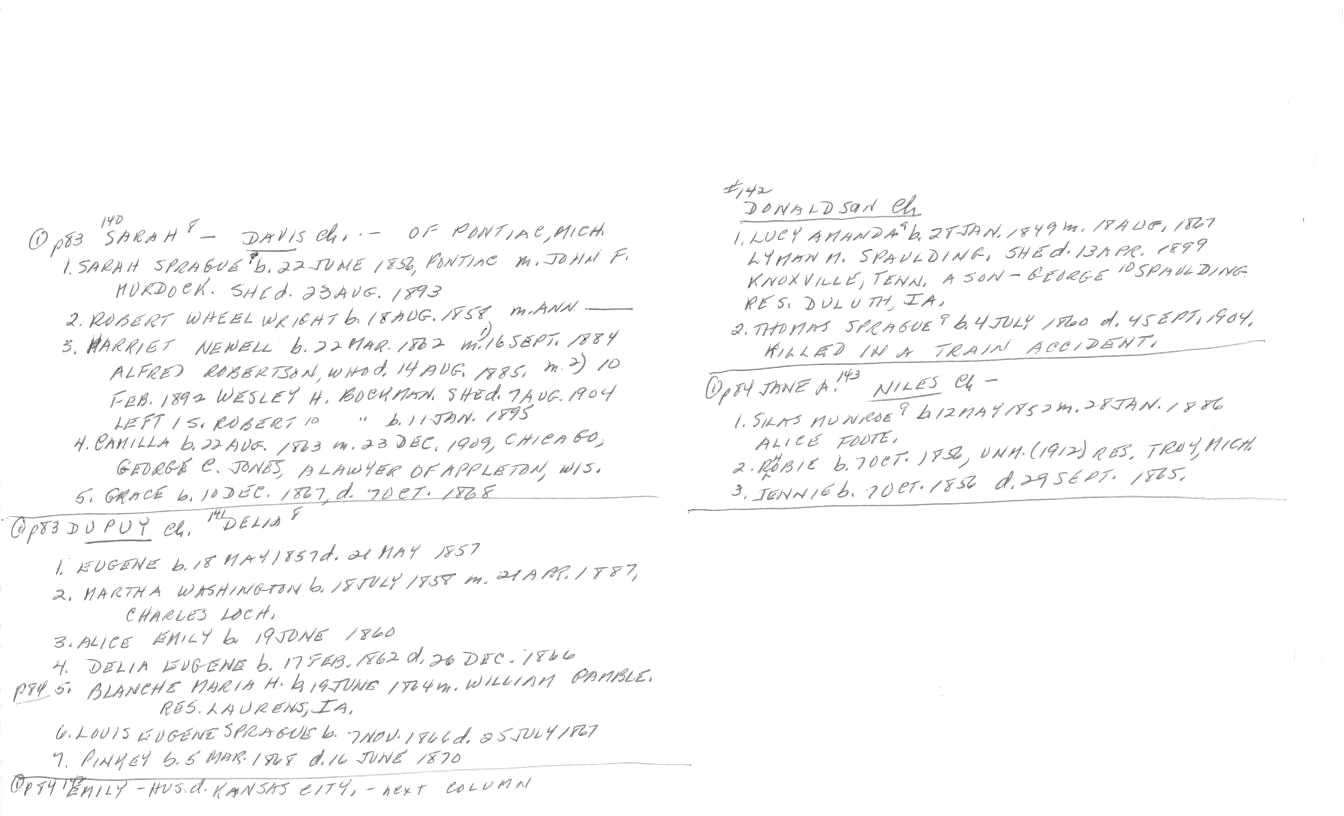 ① p83 140 SARAH 8 — DAVIS Ch. -- OF PONTIAC, MICH.
1. SARAH SPRAGUE 9 b. 22 JUNE 1856, PONTIAC m. JOHN F.
MURDOCK. SHE d. 23 AUG. 1893
2. ROBERT WHEELWRIGHT b. 18 AUG. 1858 m. ANN ——
3. HARRIET NEWELL b. 22 MAR. 1862 m. 1) 16 SEPT. 1884
ALFRED ROBERTSON, WHO d. 14 AUG. 1885. m. 2) 10
FEB. 1892 WESLEY H. BOCKMAN. SHE d. 7 AUG. 1904
LEFT 1 S. ROBERT 10 " b. 11 JAN. 1895
4. CAMILLA b. 22 AUG. 1863 m. 23 DEC. 1909, CHICAGO,
GEORGE C. JONES, A LAWYER OF APPLETON, WIS.
5. GRACE b. 10 DEC. 1867, d. 7 OCT. 1868
① p83 DUPUY Ch. 141 DELIA 8
1. EUGENE b. 18 MAY 1857 d. 21 MAY 1857
2. MARTHA WASHINGTON b. 18 JULY 1858 m. 21 APR. 1887,
CHARLES LOCH.
3. ALICE EMILY b. 19 JUNE 1860
4. DELIA EUGENE b. 17 FEB. 1862 d. 26 DEC. 1866
p84 5. BLANCHE MARIA H. b. 19 JUNE 1864 m. WILLIAM GAMBLE.
RES. LAURENS, IA.
6. LOUIS EUGENE SPRAGUE b. 7 NOV. 1866 d. 25 JULY 1867
7. PINKEY b. 5 MAR. 1868 d. 16 JUNE 1870
① P84 142 EMILY - HUS. d. KANSAS CITY. - next COLUMN
#142
DONALDSON Ch
1. LUCY AMANDA 9 b. 28 JAN. 1849 m. 18 AUG. 1867
LYMAN M. SPAULDING. SHE d. 13 APR. 1899
KNOXVILLE, TENN. A SON - GEORGE 10 SPAULDING
RES. DULUTH, IA.
2. THOMAS SPRAGUE 9 b. 4 JULY 1860 d. 4 SEPT. 1904.
KILLED IN A TRAIN ACCIDENT.
① p84 JANE A. 143 NILES Ch -
1. SILAS MUNROE 9 b. 12 MAY 1852 m. 28 JAN. 1886
ALICE FOOTE.
2. ROBIE b. 7 OCT. 1856, UNM. (1912) RES. TROY, MICH.
3. JENNIE b. 7 OCT. 1856 d. 29 SEPT. 1865.